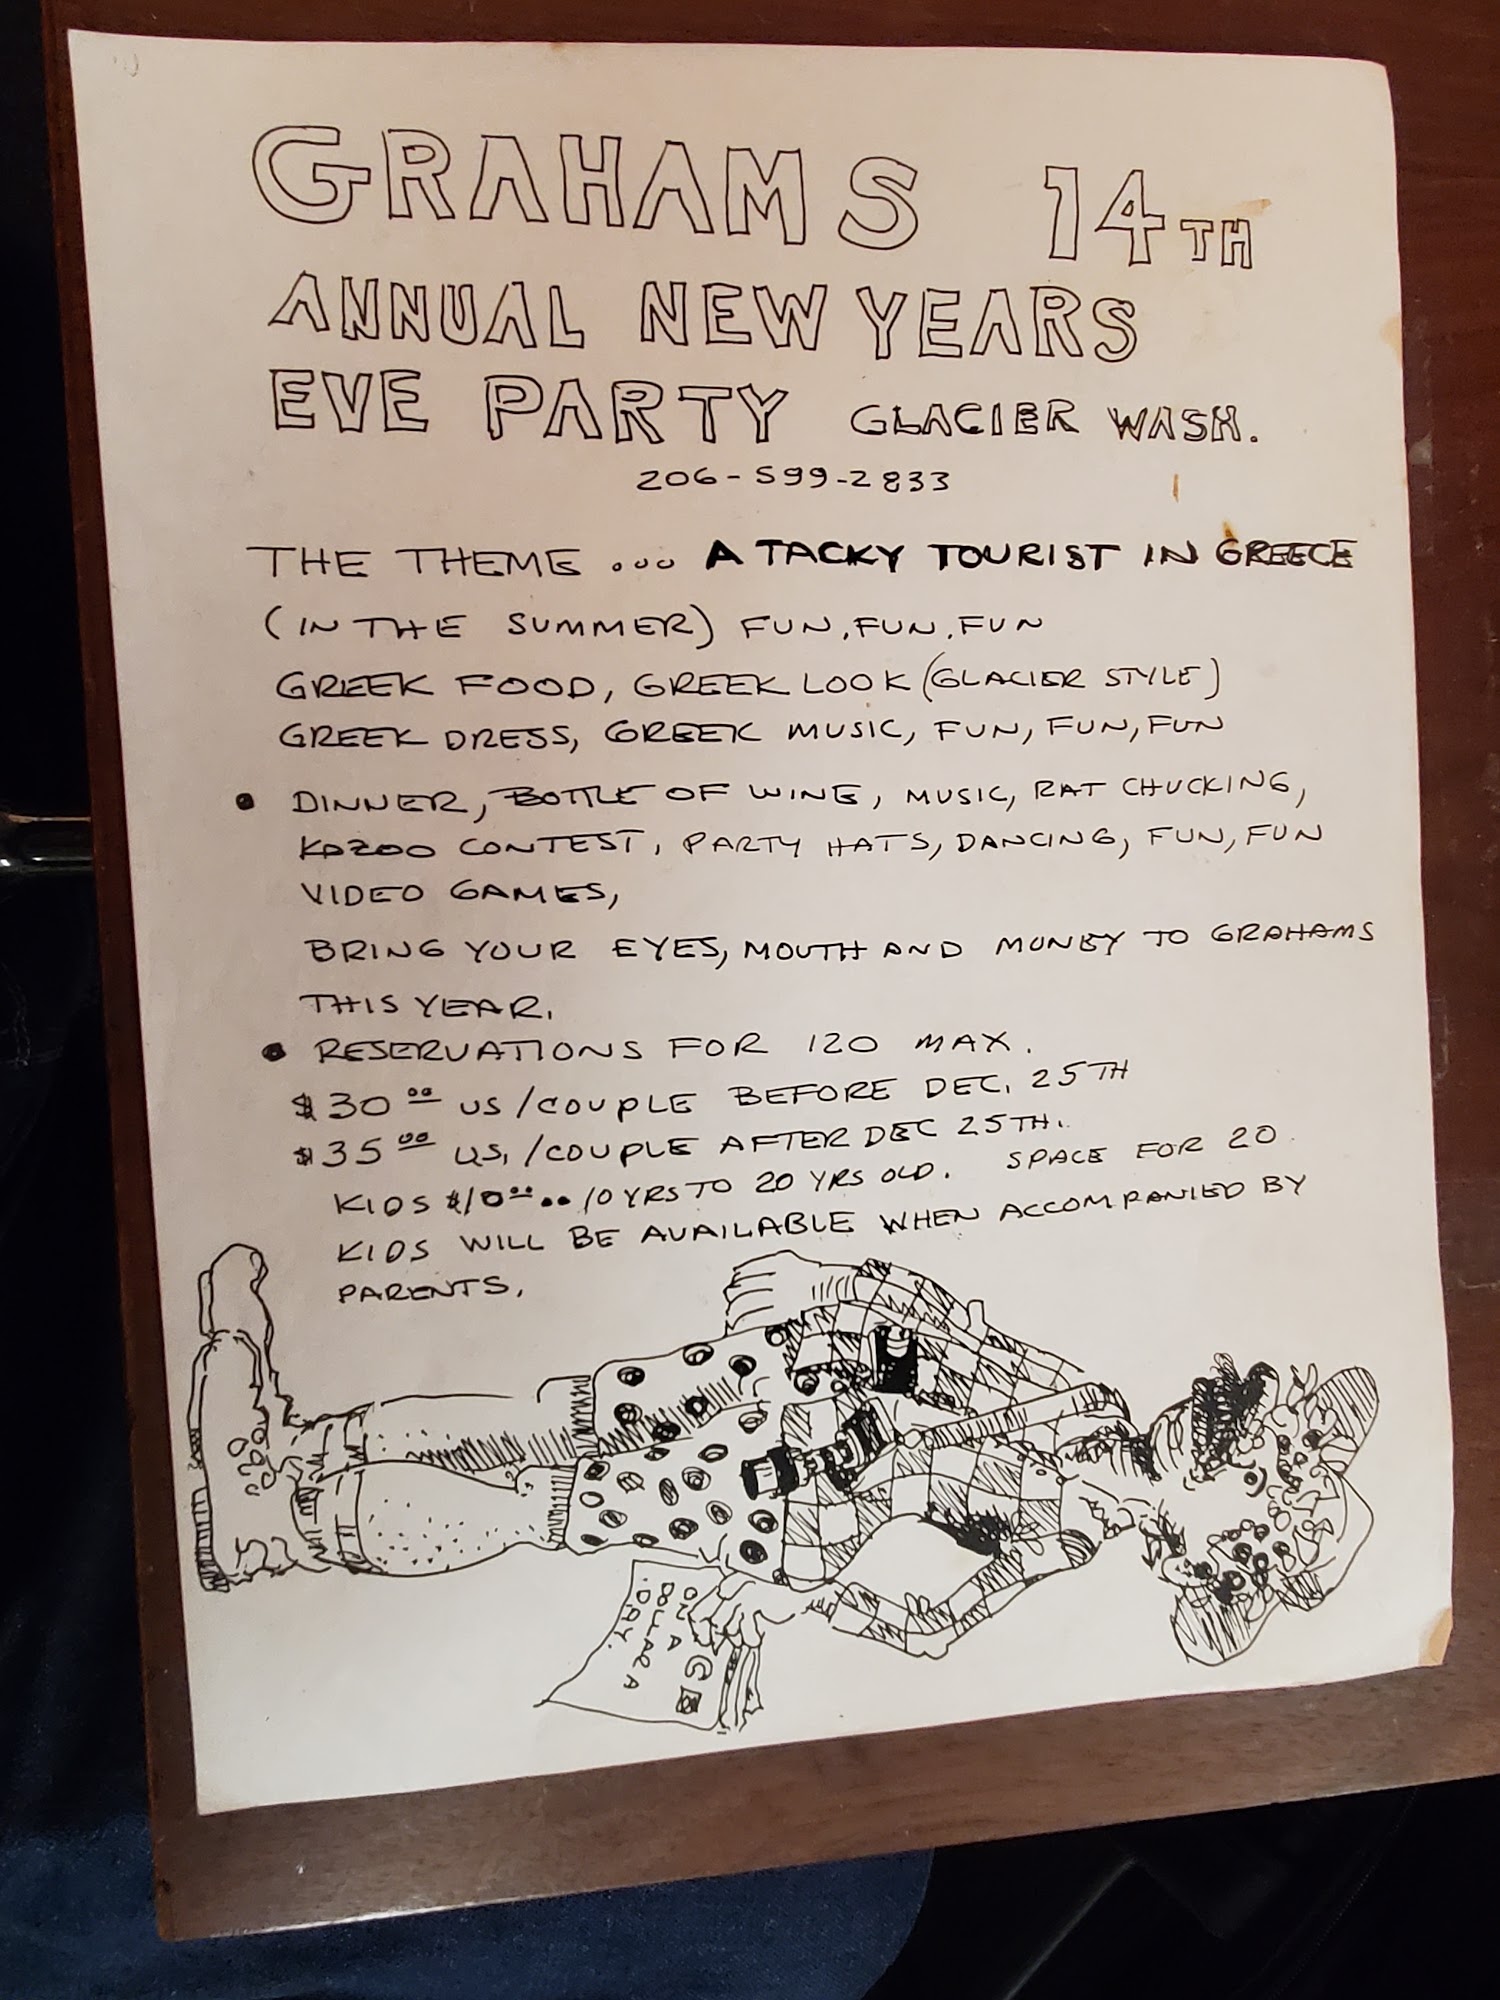 GRAHAMS 14TH
ANNUAL NEW YEARS
EVE PARTY GLACIER WASH.
206-599-2833
THE THEME ... A TACKY TOURIST IN GREECE
(IN THE SUMMER) FUN, FUN, FUN
GREEK FOOD, GREEK LOOK (GLACIER STYLE)
GREEK DRESS, GREEK MUSIC, FUN, FUN, FUN
• DINNER, BOTTLE OF WINE, MUSIC, RAT CHUCKING,
KAZOO CONTEST, PARTY HATS, DANCING, FUN, FUN
VIDEO GAMES,
BRING YOUR EYES, MOUTH AND MONEY TO GRAHAMS
THIS YEAR.
• RESERVATIONS FOR 120 MAX.
$30.00 US/COUPLE BEFORE DEC. 25TH
$35.00 US./COUPLE AFTER DEC 25TH.
KIDS $10.00.. 10 YRS TO 20 YRS OLD. SPACE FOR 20
KIDS WILL BE AVAILABLE WHEN ACCOMPANIED BY
PARENTS.
ON A
DOLLAR A
DAY.